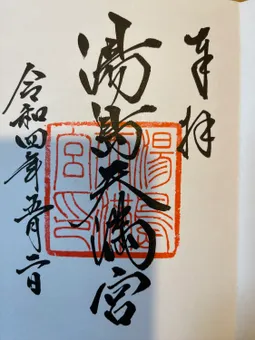 奉拝
湯島天満宮
令和四年五月二日
湯島
宮印